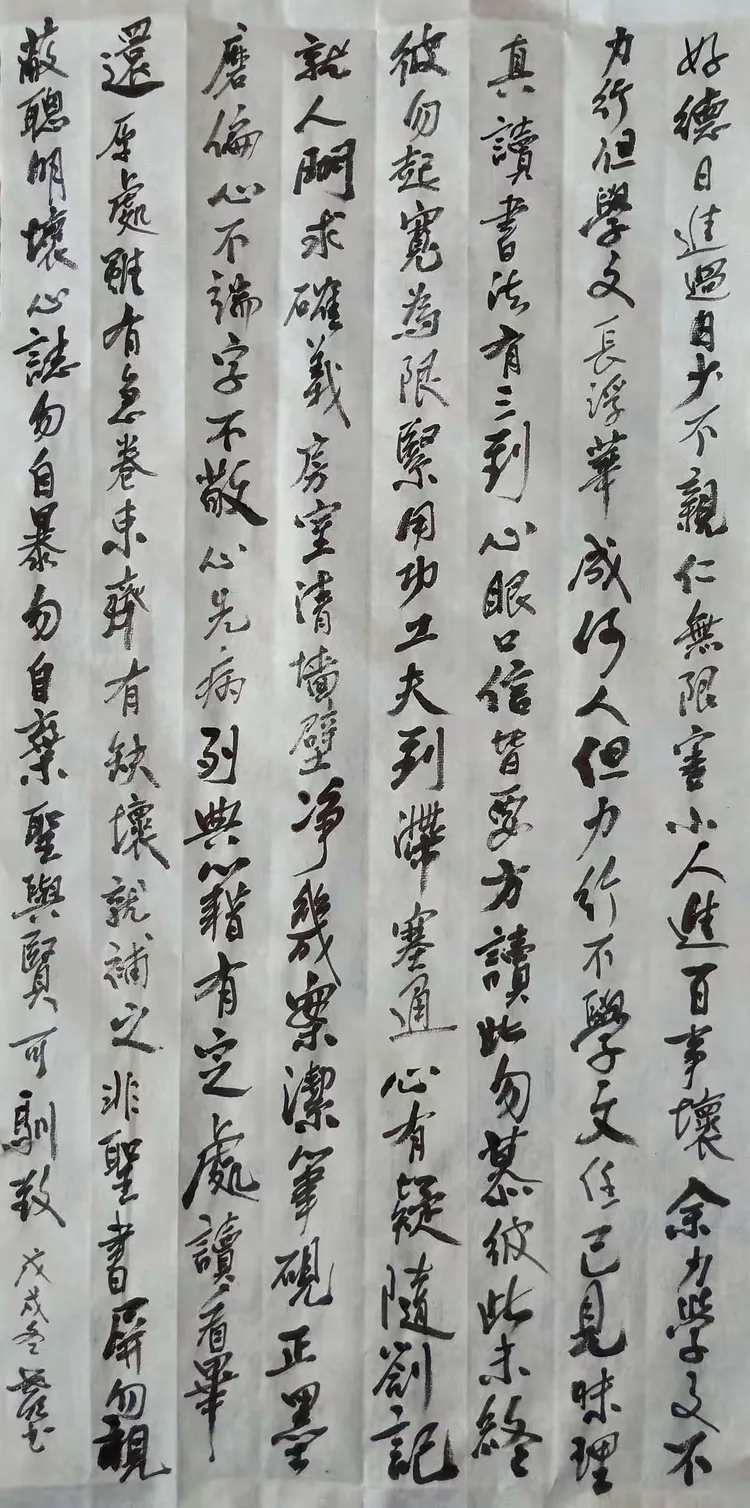 好德日進過日少不親仁無限害小人進百事壞余力學文不
力行但學文長浮華成何人但力行不學文任己見昧理
真讀書法有三到心眼口信皆要方讀此勿慕彼此未終
彼勿起寬為限緊用功工夫到滯塞通心有疑隨劄記
就人問求確義房室清墻壁凈幾案潔筆硯正墨
磨偏心不端字不敬心先病列典籍有定處讀看畢
還原處雖有急卷束齊有缺壞就補之非聖書屏勿視
蔽聰明壞心誌勿自暴勿自棄聖與賢可馴致
戊戌冬書